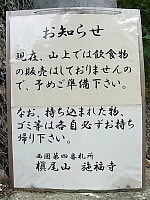 お知らせ
現在、山上では飲食物
の販売はしておりませんの
で、予めご準備下さい。
なお、持ち込まれた物、
ゴミ等は各自必ずお持ち
帰り下さい。
西国第四番札所
槇尾山 施福寺